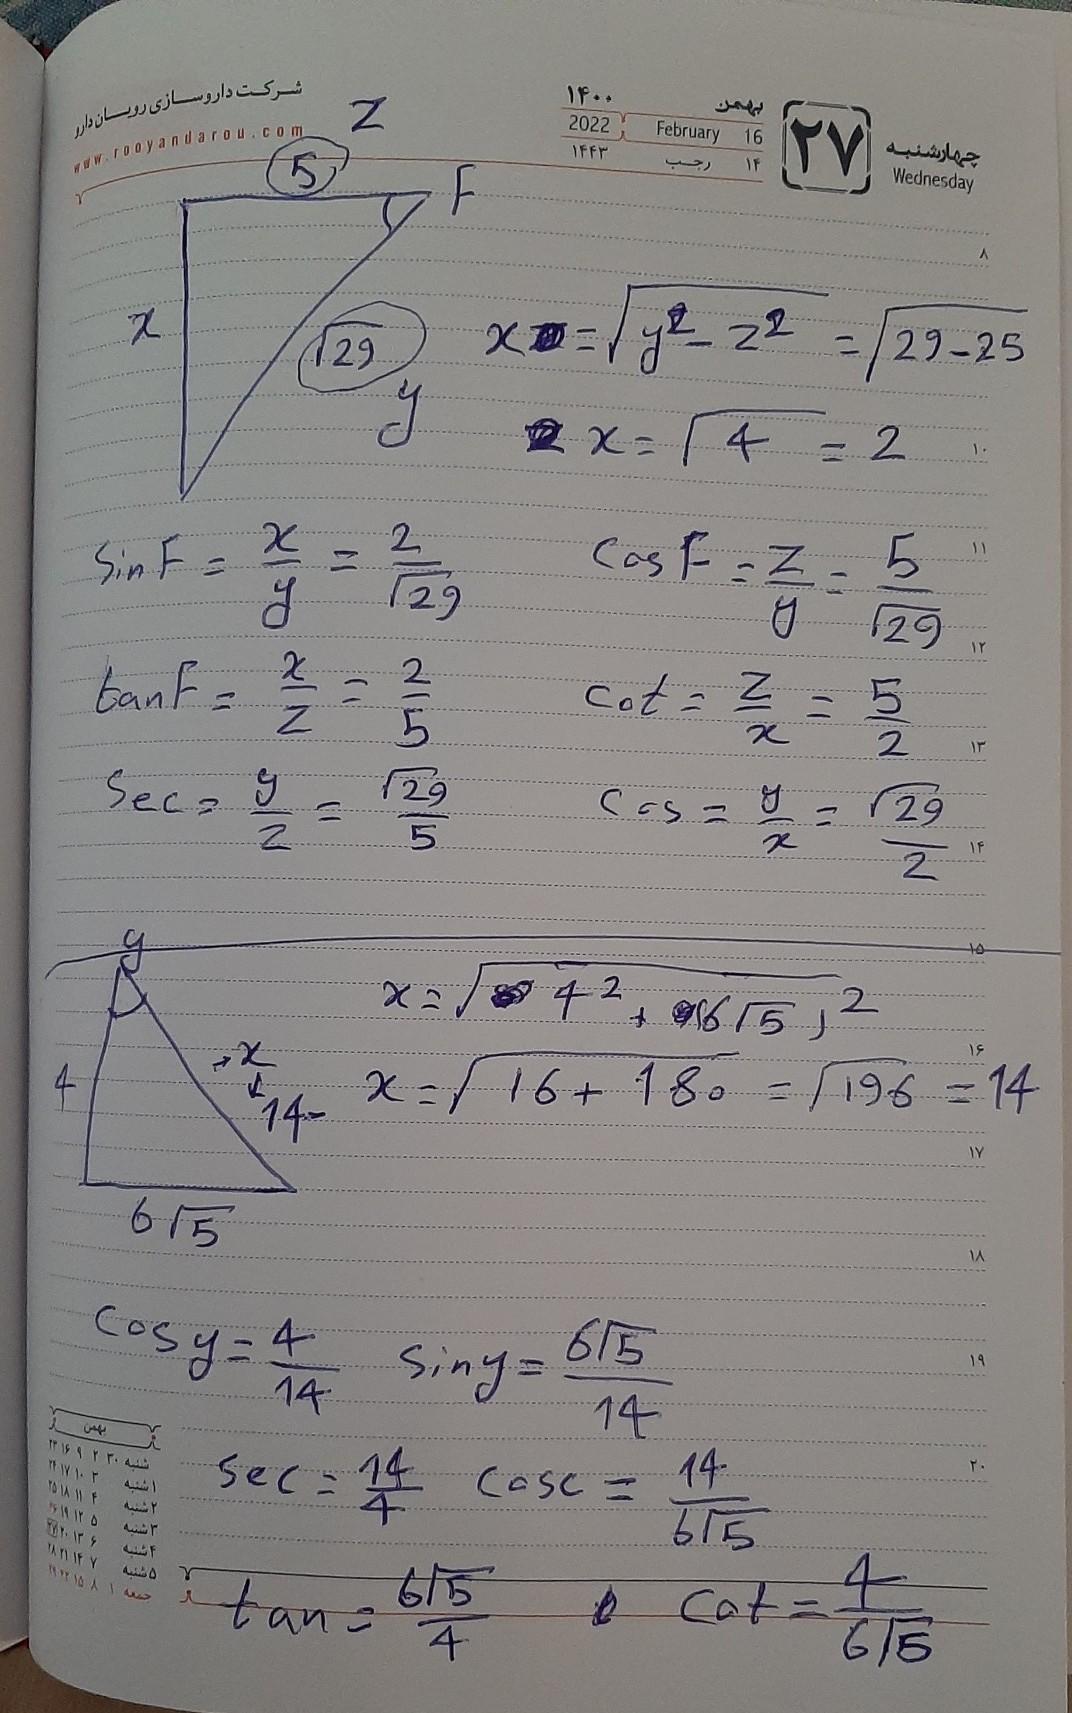 شرکت داروسازی رویان دارو
www.rooyandarou.com
بهمن ۱۴۰۰
February 16 2022
۱۴ رجب ۱۴۴۳
۲۷
چهارشنبه
Wednesday
Z
5
F
x
√29
y
x = √y² - z² = √29-25
x = √4 = 2
sin F = x/y = 2/√29
cos F = z/y = 5/√29
tan F = x/z = 2/5
cot = z/x = 5/2
Sec = y/z = √29/5
cos = y/x = √29/2
y
4
→ x
↓
14
6√5
x = √4² + (6√5)²
x = √16 + 180 = √196 = 14
cos y = 4/14
sin y = 6√5/14
sec = 14/4
cosc = 14/6√5
tan = 6√5/4
cot = 4/6√5
۸
۱۰
۱۱
۱۲
۱۳
۱۴
۱۵
۱۶
۱۷
۱۸
۱۹
۲۰
بهمن
شنبه ۳۰ ۲ ۹ ۱۶ ۲۳
۱شنبه ۳ ۱۰ ۱۷ ۲۴
۲شنبه ۴ ۱۱ ۱۸ ۲۵
۳شنبه ۵ ۱۲ ۱۹ ۲۶
۴شنبه ۶ ۱۳ ۲۰ ۲۷
۵شنبه ۷ ۱۴ ۲۱ ۲۸
جمعه ۱ ۸ ۱۵ ۲۲ ۲۹